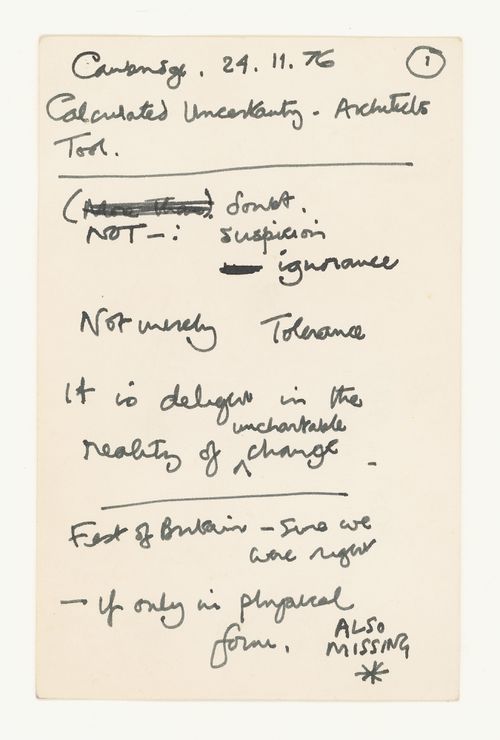 Cambridge. 24.11.76 1
Calculated Uncertainty - Architects
Tool.
(More than) doubt.
NOT -: suspicion
ignorance
Not merely Tolerance
It is delight in the
unchartable
reality of change -
Fest of Britain - Sure we
were right
- if only in physical
form. ALSO
MISSING
*